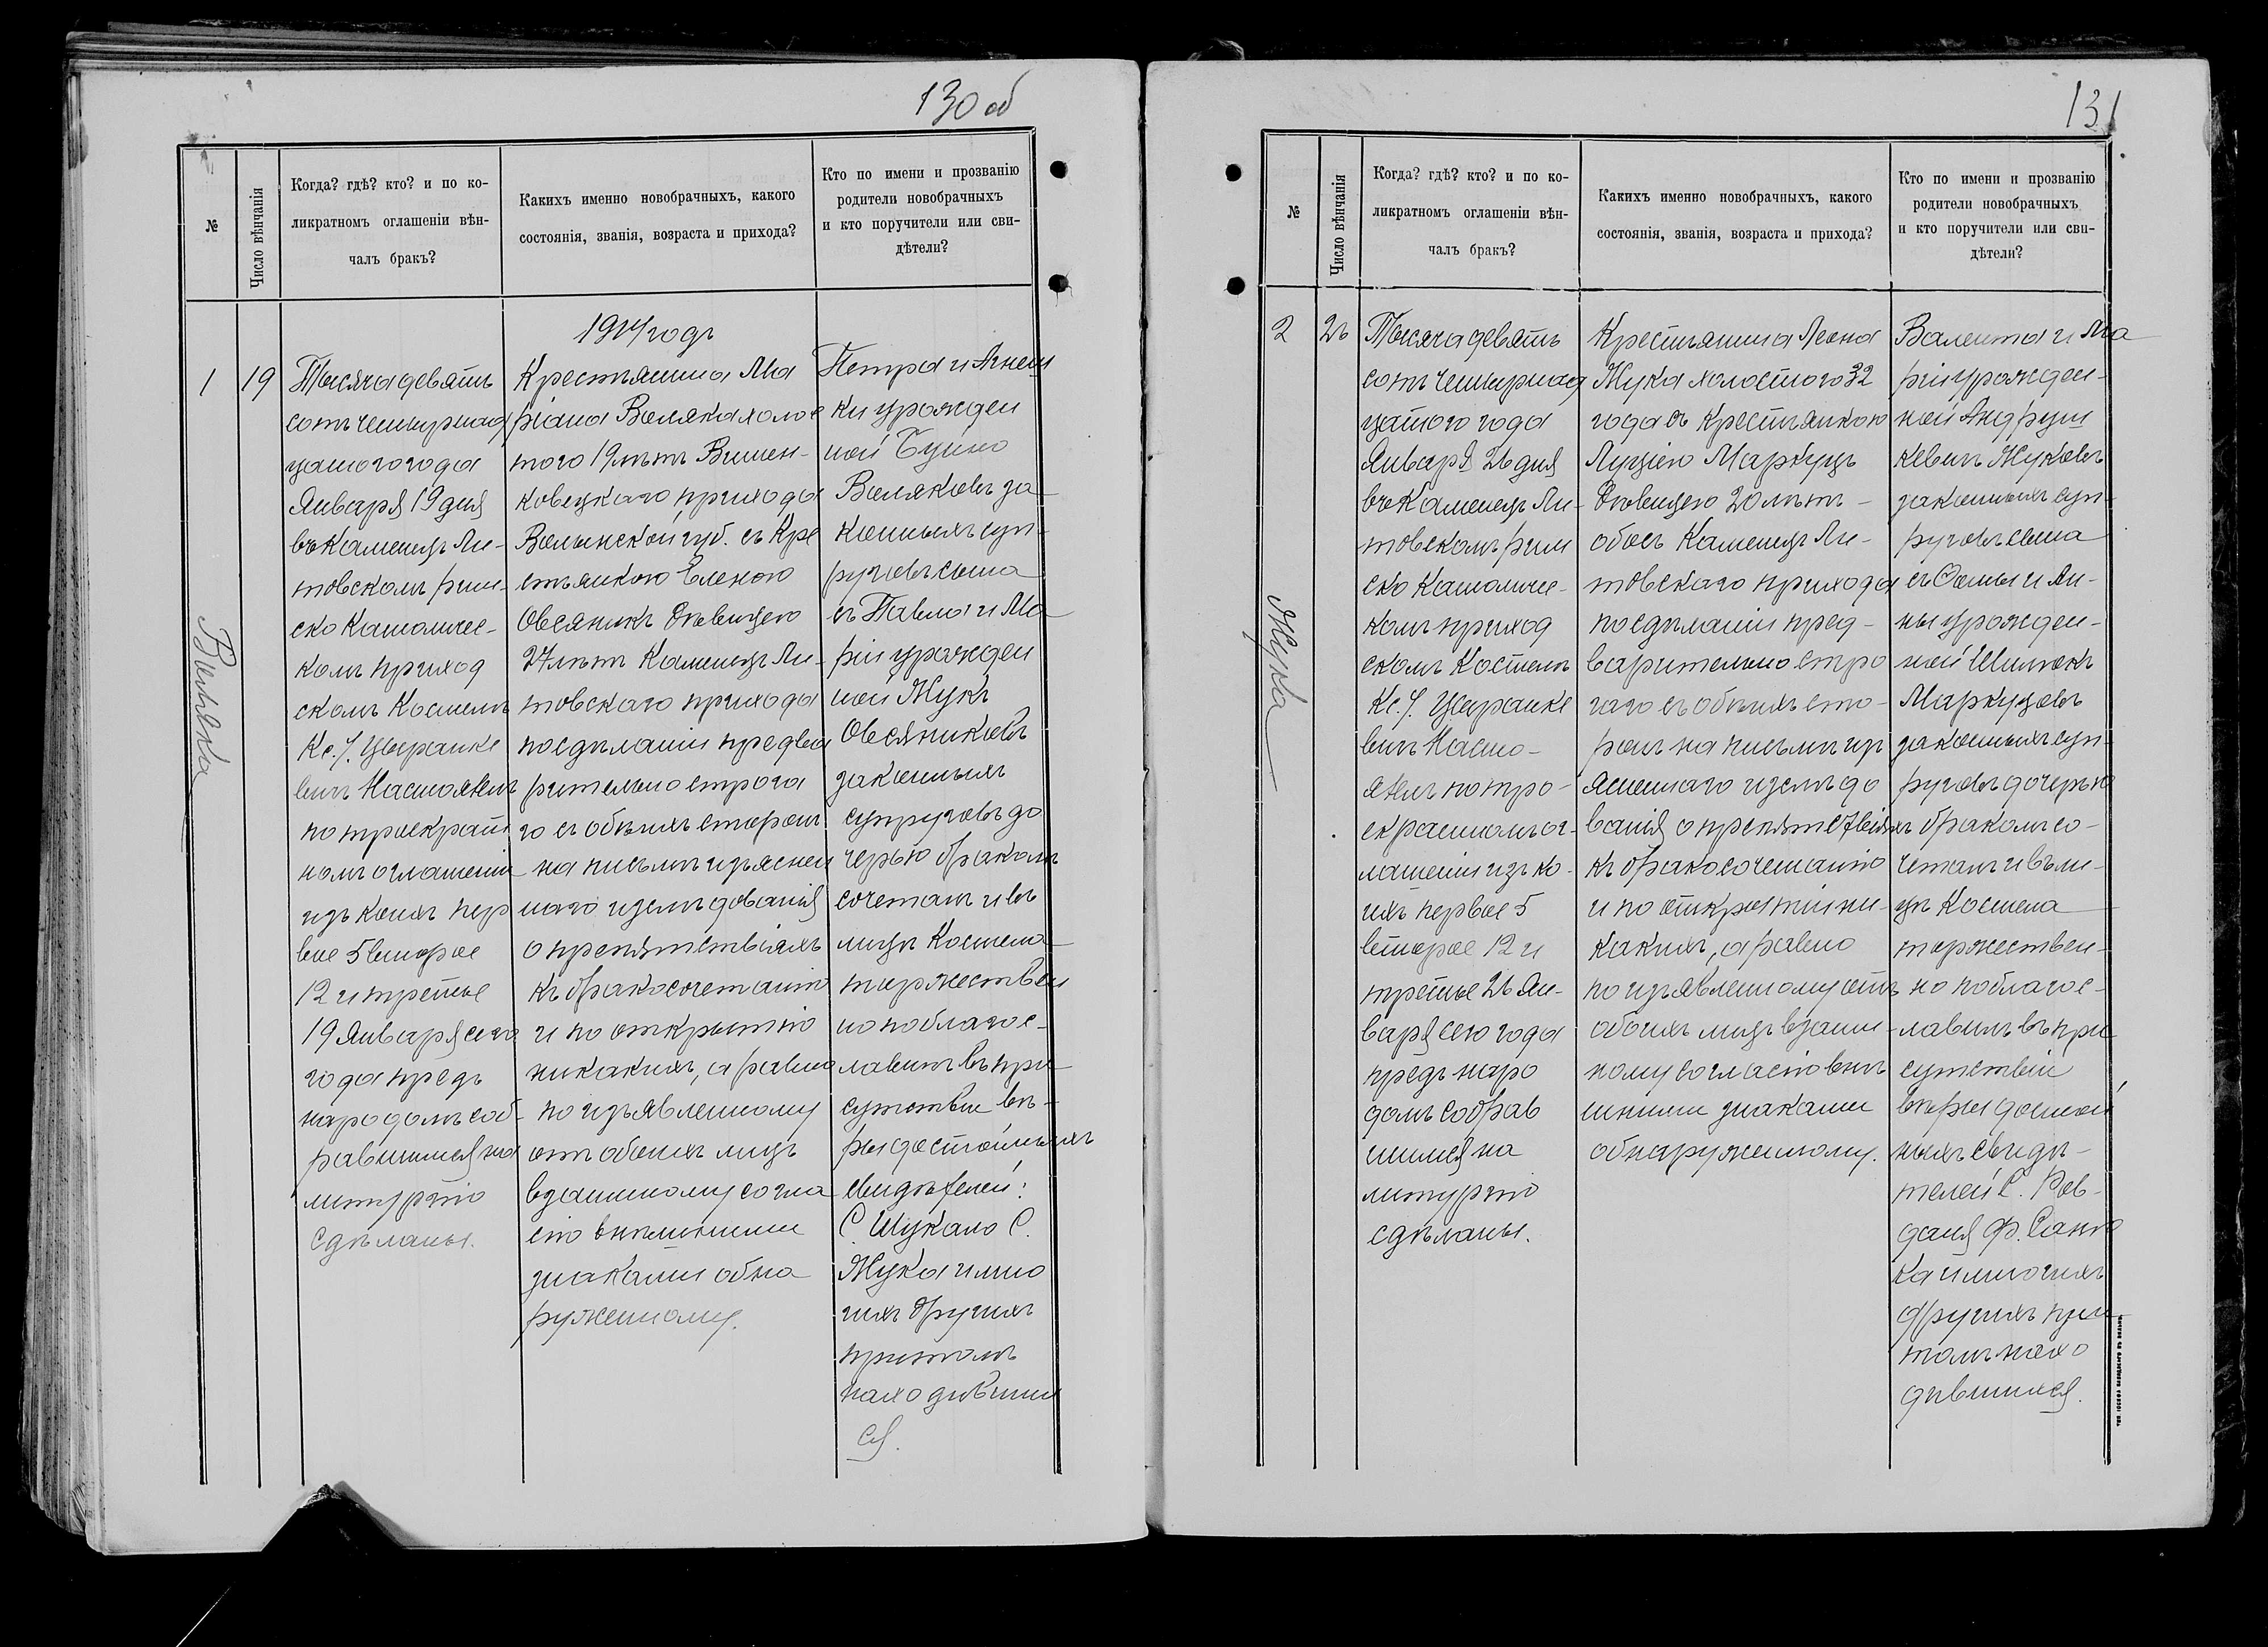 130 об
№
Число вѣнчанія
Когда? гдѣ? кто? и по ко-
ликратномъ оглашеніи вѣн-
чалъ бракъ?
Какихъ именно новобрачныхъ, какого
состоянія, званія, возраста и прихода?
Кто по имени и прозванію
родители новобрачныхъ
и кто поручители или сви-
дѣтели?
1
19
Тысяча девять
сотъ четырнад
цатого года
Января 19 дня
въ Каменецъ Ли-
товскомъ рим-
ско Католичес-
комъ приход
скомъ Костелѣ
Кс. І.
вичъ Настоятель
по троекрат
номъ оглашеніи
изъ коихъ пер
вое 5 второе
12 и третье
19 Января сего
года предъ
народомъ соб-
равшимся на
литургію
сдѣланы.
1914 годъ
Крестьянина Ма
ріана Воляка холос
того 19 лѣтъ Вишен-
ковецкаго прихода
Волынской губ. съ Кре
стьянкою Еленою
Овсяникъ дѣвицею
27 лѣтъ Каменецъ Ли-
товскаго прихода
по сдѣланіи предва
рительно строга
го съ обѣихъ сторонъ
на письмѣ изъяснен
наго изслѣдованія
о препятствіяхъ
къ бракосочетанію
и по открытію
никакихъ, а равно
по изъявленному
отъ обоихъ лицъ
взаимному согла
сію внѣшними
знаками обна
руженному.
Петра и Агнеш
ки урожден
ной Буйно
Воляковъ за
конныхъ суп-
руговъ сына
съ Павла и Ма
ріи урожден
ной Жукъ
Овсяниковъ
законныхъ
супруговъ до
черью бракомъ
сочеталъ и въ
лицѣ Костела
торжествен
но поблагос-
лавилъ въ при
сутствіи вѣ-
ры достойныхъ
свидѣтелей:
С. Шукало С.
Жука и мно
гихъ другихъ
притомъ
находивших
ся.
131
№
Число вѣнчанія
Когда? гдѣ? кто? и по ко-
ликратномъ оглашеніи вѣн-
чалъ бракъ?
Какихъ именно новобрачныхъ, какого
состоянія, званія, возраста и прихода?
Кто по имени и прозванію
родители новобрачныхъ
и кто поручители или сви-
дѣтели?
2
26
Жука
Тысяча девять
сотъ четырнад
цатого года
Января 26 дня
въ Каменецъ Ли-
товскомъ рим
ско Католичес-
комъ приход
скомъ Костелѣ
Кс. І.
вичъ Насто-
ятель по тро-
екратномъ ог-
лашеніи изъ ко-
ихъ первое 5
второе 12 и
третье 26 Ян-
варя сего года
предъ наро
домъ собрав
шимся на
литургію
сдѣланы.
Крестьянина Леона
Жука холостого 32
года съ Крестьянкою
Люціею Маркуцъ
дѣвицею 20 лѣтъ -
обоъ Каменецъ Ли-
товскаго прихода
по сдѣланіи пред-
варительно стро
гаго съ обѣихъ сто-
ронъ на письмѣ изъ
ясненнаго изслѣдо
ванія о препятствіяхъ
къ бракосочетанію
и по открытіи ни-
какихъ, а равно
по изъявленному отъ
обоихъ лицъ взаим-
ному согласію внѣ
шними знаками
обнаруженному.
Валента и Ма
ріи урожден-
ной Андруш
кевичъ Жуковъ
законныхъ суп-
руговъ сына
съ Ѳомы и Ан-
ны урожден-
ной
Маркуцовъ
законныхъ суп-
руговъ дочерью
бракомъ со-
четалъ и въ ли-
цѣ Костела
торжествен-
но поблагос-
лавилъ въ при
сутствіи
вѣры достой
ныхъ свидѣ-
телей С. Рав-
даня Ф.
ка и многихъ
другихъ при
томъ нахо
дившихся.